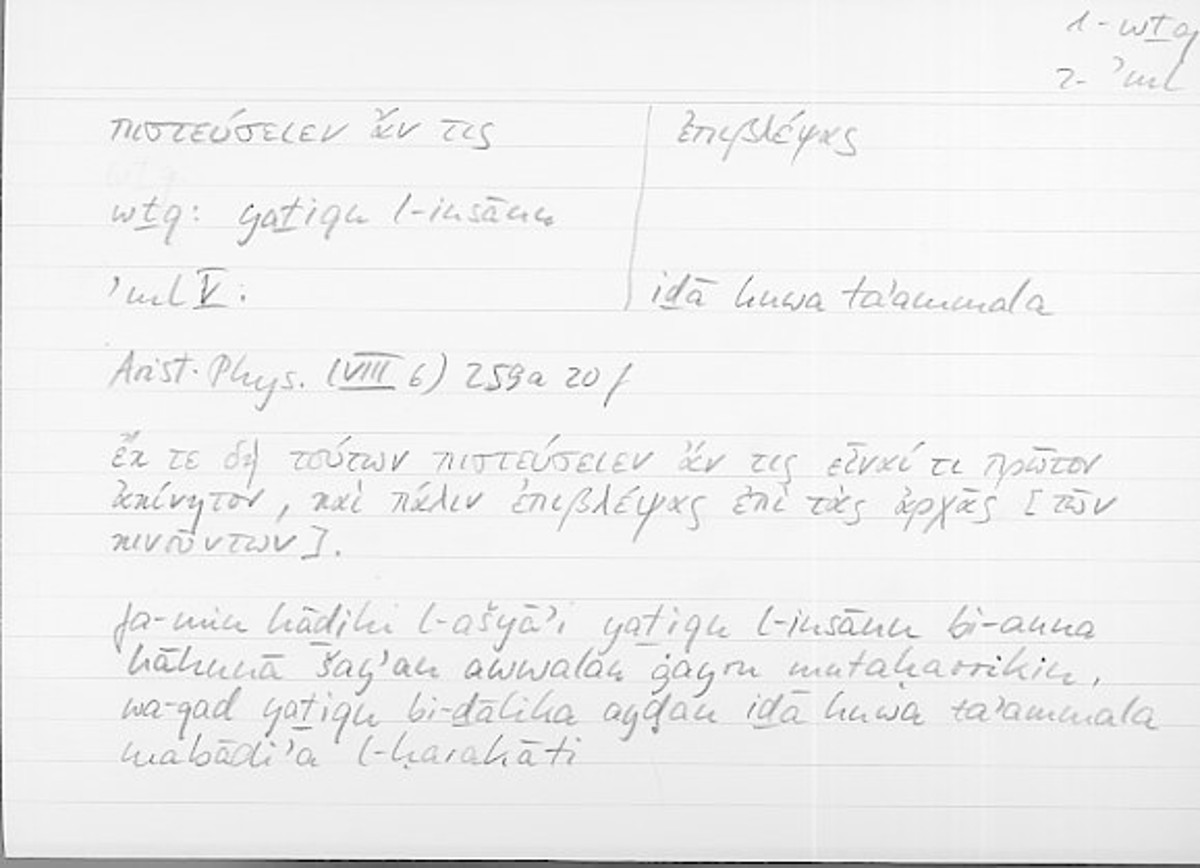 1- wṯq
2- ʾml
πιστεύσειεν ἄν τις | ἐπιβλέψας
wṯq: yaṯiqu l-insānu
ʾml V: | iḏā huwa taʾammala
Arist. Phys. (VIII 6) 259a 20f
ἔκ τε δὴ τούτων πιστεύσειεν ἄν τις εἶναί τι πρῶτον
ἀκίνητον, καὶ πάλιν ἐπιβλέψας ἐπὶ τὰς ἀρχὰς [τῶν
κινούντων].
fa-min hāḏihi l-ašyāʾi yaṯiqu l-insānu bi-anna
hāhunā šayʾan awwalan ġayra mutaḥarrikin,
wa-qad yaṯiqu bi-ḏālika ayḍan iḏā huwa taʾammala
mabādiʾa l-ḥarakāti